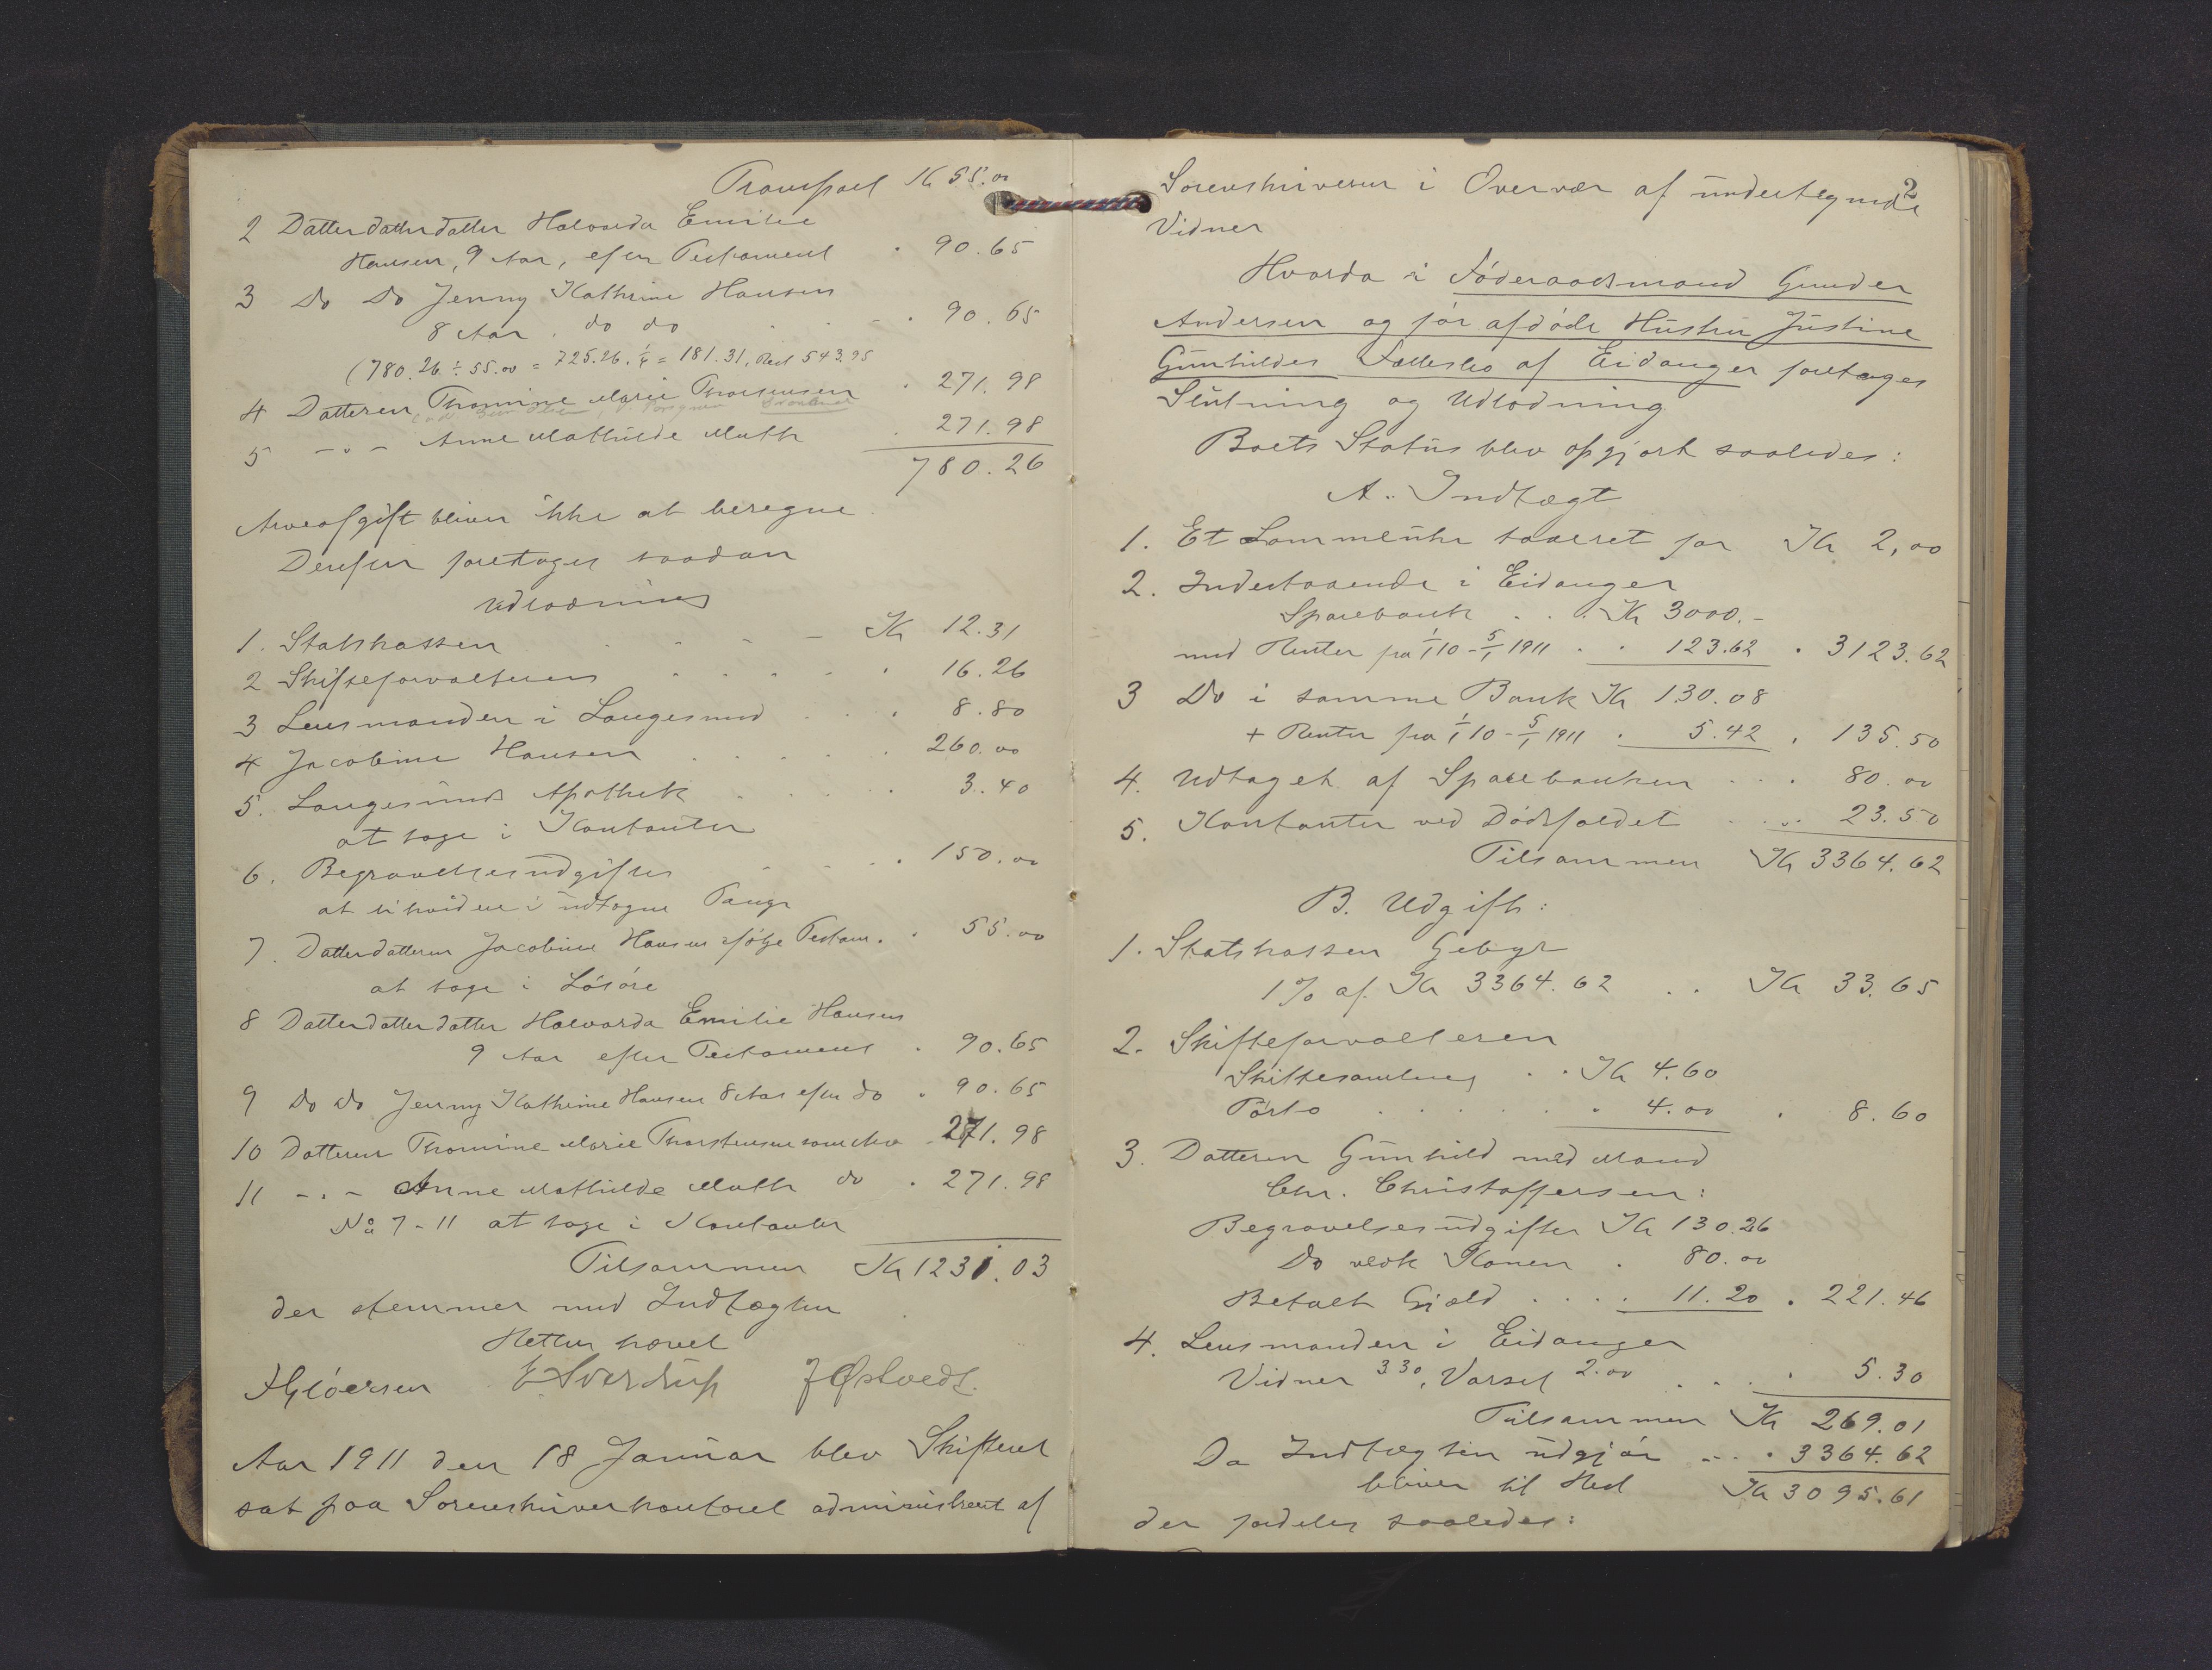 Transport Kr 55.00
2 Datterdatterdatter Halvarda Emilie
Hansen, 9 Aar, efter Testament . 90.65
3 Do Do Jenny Kathrine Hansen
8 Aar . do do . . . 90.65
(780.26 ÷ 55.00 = 725.26. ¼ = 181.31, Rest 543.95
4 Datteren Thomine Marie Thorstensen . 271.98
5 - " - Anne Mathilde Muth . 271.98
780.26
Arveafgift bliver ikke at beregne
Derefter foretages saadan
Udlodning
1. Statskassen . . . . Kr 12.31
2 Skifteforvalteren . . . . . 16.26
3 Lensmanden i Langesund . . . 8.80
4 Jacobine Hansen . . . . . 260.00
5. Langesunds Apothek . . . . 3.40
at tage i Kontanter
6. Begravelsesudgifter . . . . 150.00
at likvidere i udtagne Penge
7. Datterdatteren Jacobine Hansen ifølge Testam. . 55.00
at tage i Løsøre
8 Datterdatterdatter Halvarda Emilie Hansen
9 Aar efter Testament . 90.65
9 Do Do Jenny Kathrine Hansen 8 Aar efter do . 90.65
10 Datteren Thomine Marie Thorstensen som Arv . 271.98
11 - " - Anne Mathilde Muth do . 271.98
No 7-11 at tage i Kontanter
Tilsammen Kr 1231.03
der stemmer med Indtægten
Retten hævet
E Sverdrup J Østvedt.
Aar 1911 den 18 Januar blev Skifteret
sat paa Sorenskriverkontoret administreret af
2
Sorenskriveren i Overvær af undertegnede
Vidner
Hvorda i Føderaadsmand Gunder
Andersen og før afdøde Hustru Justine
Gunhildes Fællesbo af Eidanger foretages
Slutning og Udlodning
Boets Status blev opgjort saaledes:
A. Indtægt
1. Et Lommeuhr taxeret for Kr 2,00
2. Indestaaende i Eidanger
Sparebank . . . Kr 3000.-
med Renter fra 1/1 10 - 5/1 1911 . . 123.62 . 3123.62
3 Do i samme Bank Kr 130.08
+ Renter fra 1/1 10 - 5/1 1911 . 5.42 . 135.50
4. Udtaget af Sparebanken . . . 80.00
5. Kontanter ved Dødsfaldet . . . . 23.50
Tilsammen Kr 3364.62
B. Udgift:
1. Statskassen Gebyr
1% af Kr 3364.62 . . Kr 33.65
2. Skifteforvalteren
Skiftesamling . . Kr 4.60
Porto . . . . . . 4.00 . 8.60
3. Datteren Gunhild med Mand
Chr. Christoffersen:
Begravelsesudgifter Kr 130.26
Do vedk Konen . 80.00
Betalt Gjæld . . . . 11.20 . 221.46
4. Lensmanden i Eidanger
Vidner 3.30, Varsel 2.00 . . . . 5.30
Tilsammen Kr 269.01
Da Indtægten udgjør . . . 3364.62
bliver til Rest Kr 3095.61
der fordeles saaledes: